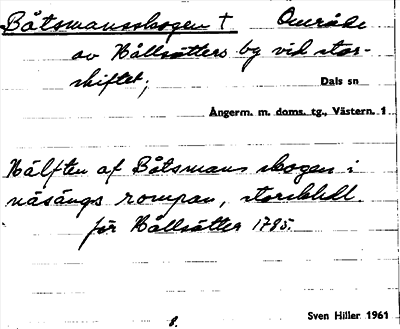 Båtsmansskogen † Område
av Hållsätters by vid stor-
skiftet;
Dals sn
Ångerm. m. doms. tg., Västern. 1
Hälften af Båtsmans skogen i
näsängs rompan, storskifll.
för Hållsätter 1795.
8.
Sven Hiller 1961